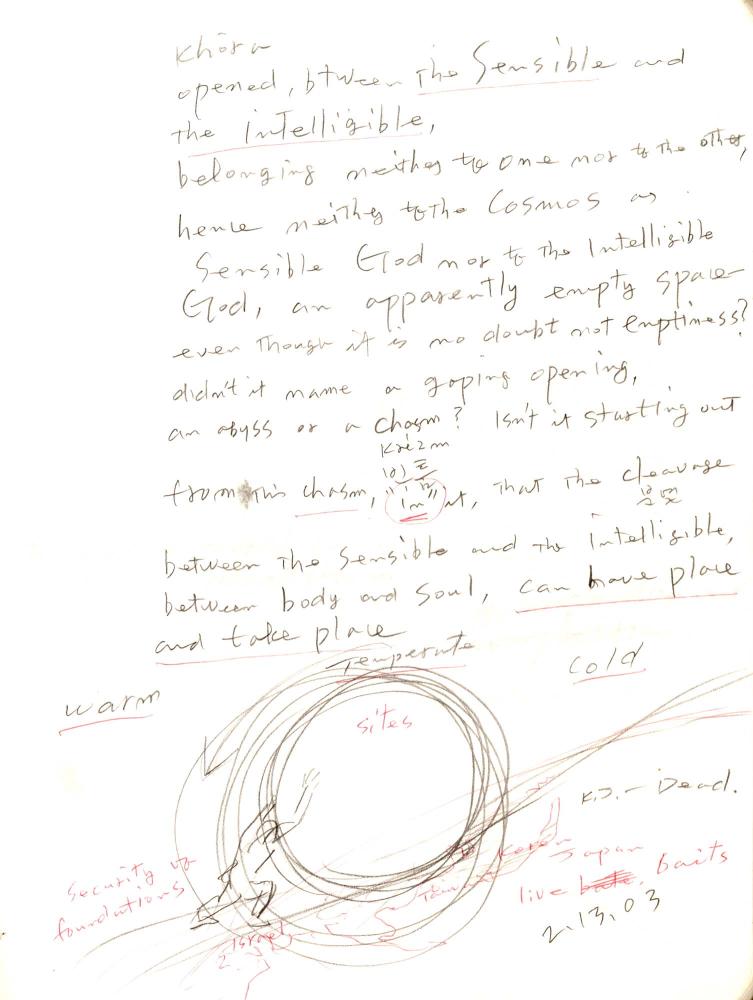 Khōra
opened, btween The Sensible and
the intelligible,
belonging neither to one nor to the other,
hence neither to the Cosmos as
Sensible God nor to the Intelligible
God, an apparently empty space
even though it is no doubt not emptiness?
didn't it name a gaping opening,
an abyss or a chasm? Isn't it starting out
Kǽzm
from this chasm, "in" it, that the cleavage
between the Sensible and the intelligible,
between body and soul, can have place
and take place
Temperate
Cold
warm
sites
K.J. - Dead.
Security of
foundations
Korea
Japan
live baits
Israel
2.13.03